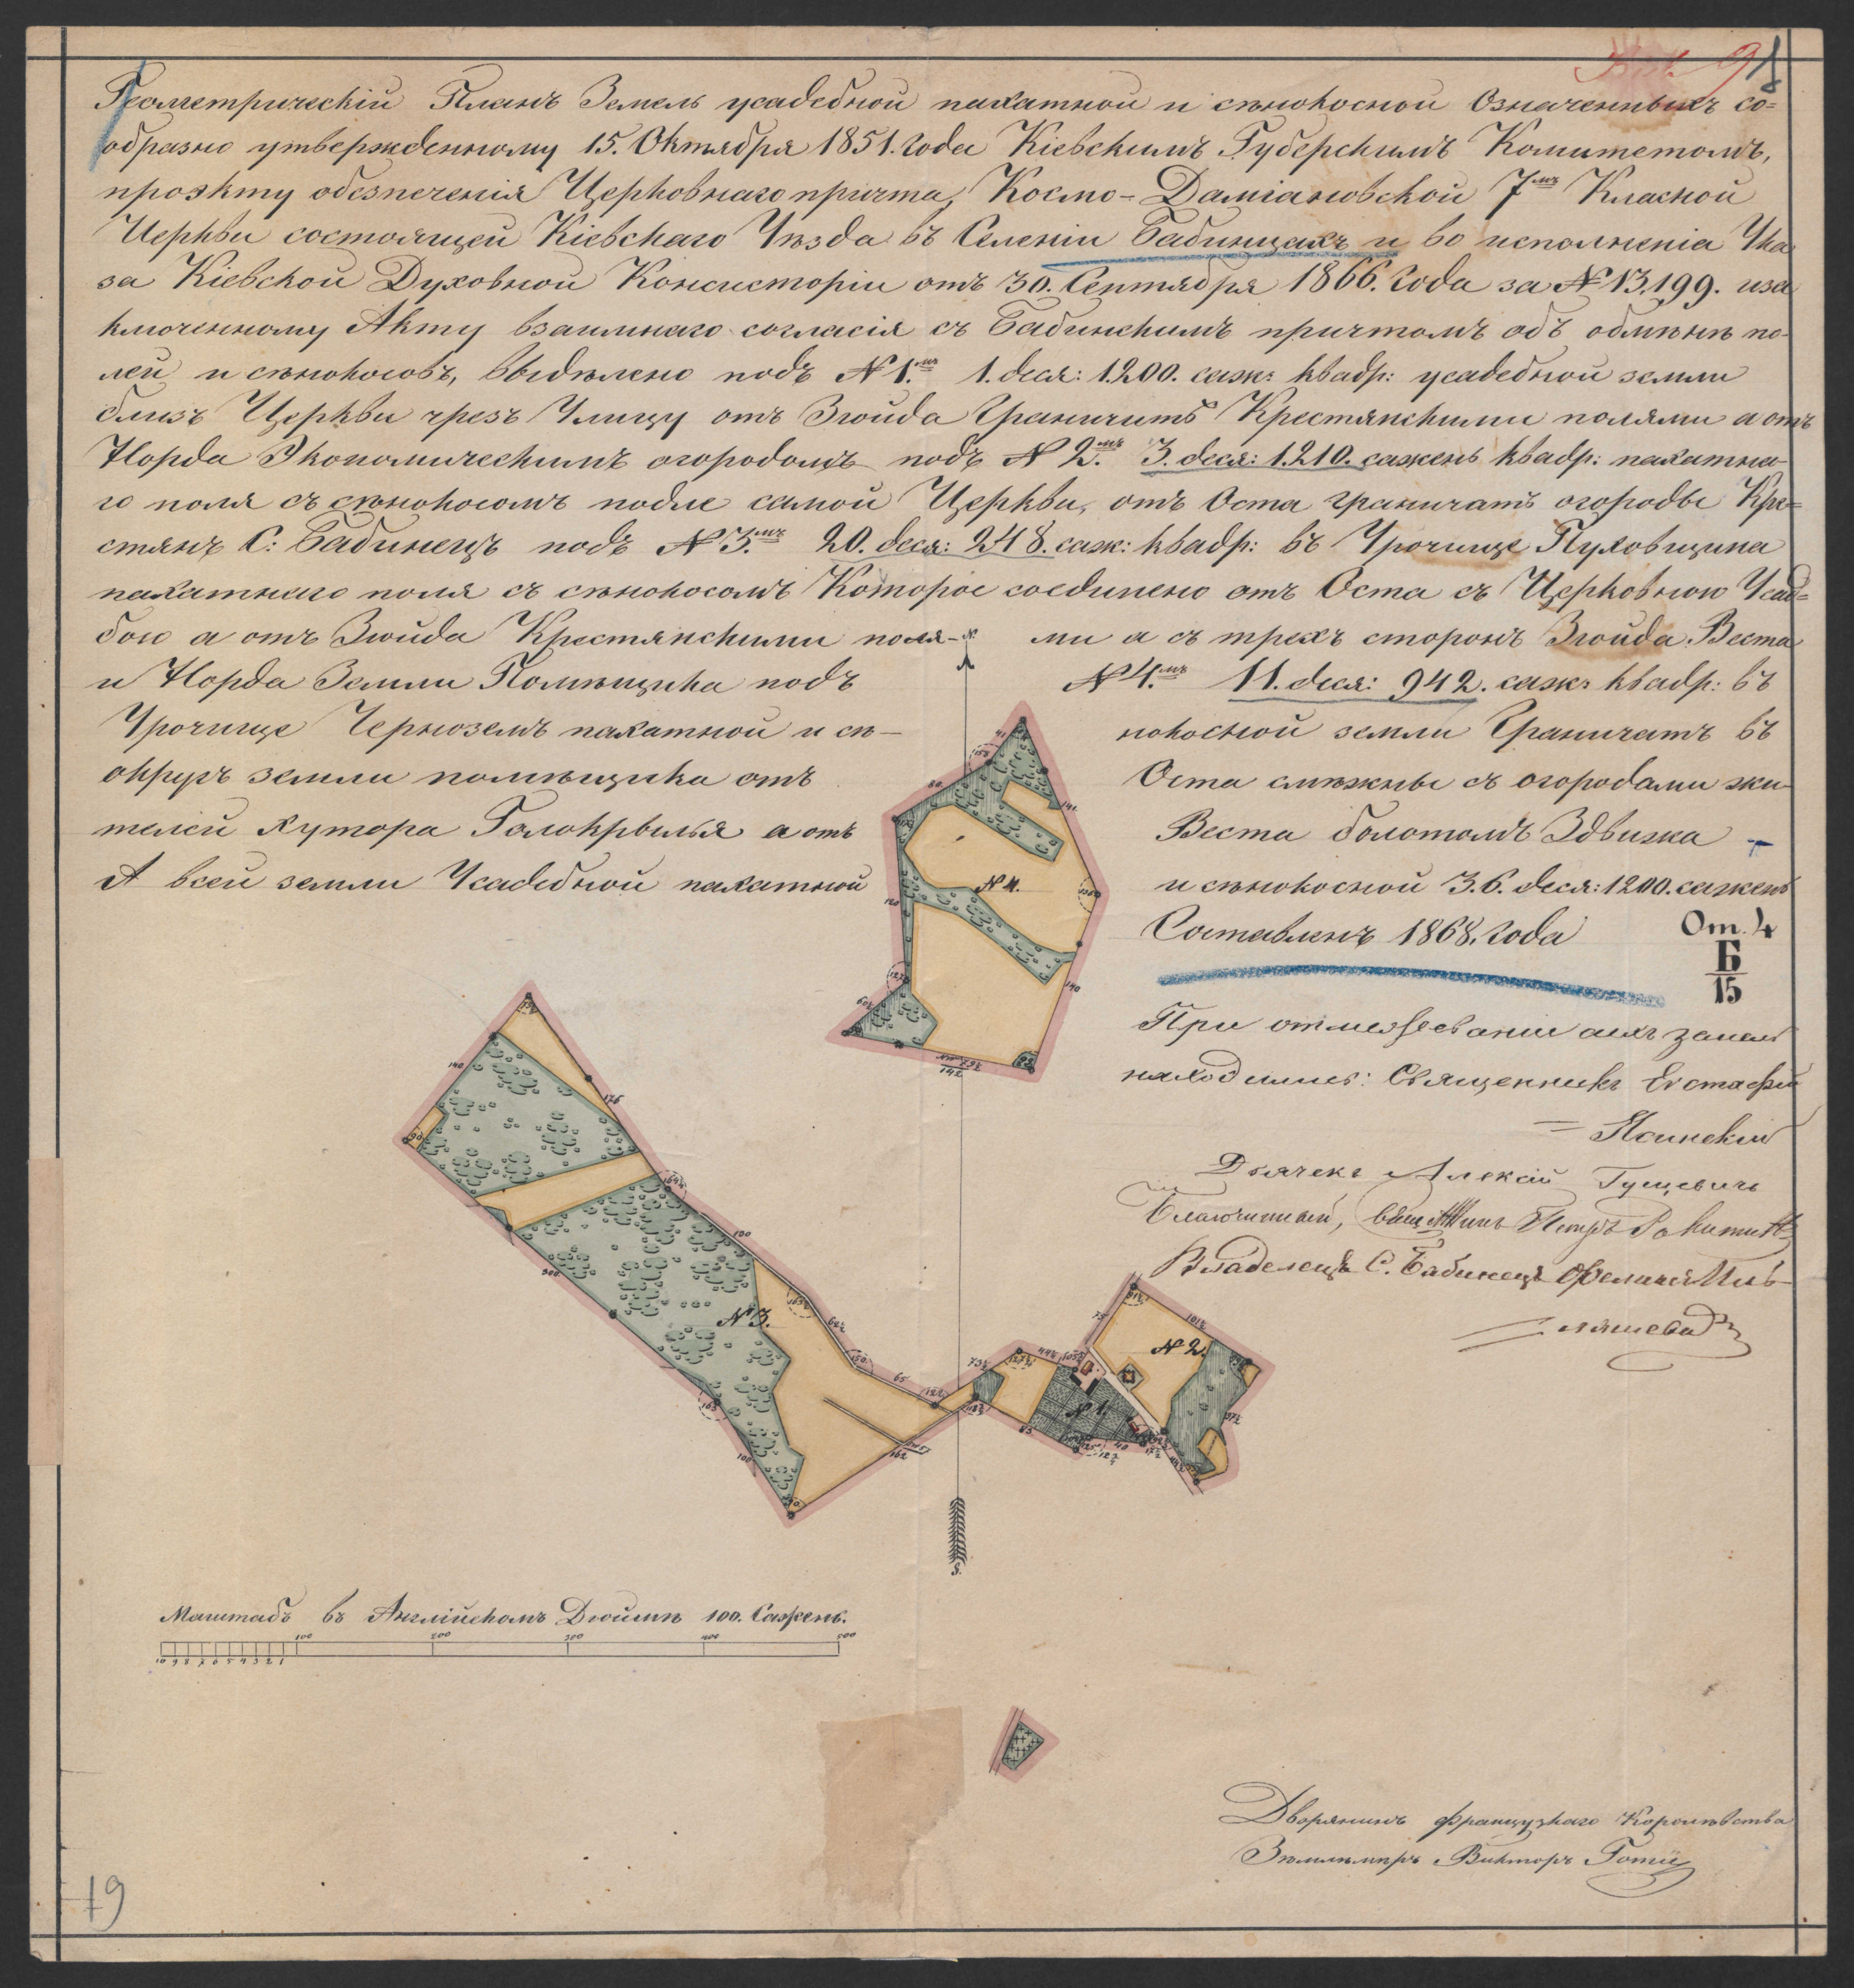 Геометрическій Планъ Земель усадебной пахатной и сѣнокосной Означенныхъ со=
образно утвержденному 15. Октября 1851. года Кіевскимъ Губерскимъ Комитетомъ,
проэкту обезпеченія Церковнаго причта, Космо=Даміановской 7мъ Класной
Церкви состоящей Кіевскаго Уѣзда въ Селеніи Бабинцахъ и во исполненіа Ука
за Кіевской Духовной Консисторіи отъ 30. Сентября 1866. года за № 13,199. иза
ключенному Акту взаимнаго согласія съ Бабинскимъ причтомъ объ обмѣнѣ по-
лей и сѣнокосовъ, выдѣлено подъ № 1.мъ 1. деся: 1200. саж: квадр: усадебной земли
близъ Церкви чрезъ Улицу отъ Зюйда Граничитъ Крестянскими полями а отъ
Норда Экономическимъ огородомъ подъ № 2.мъ 3. деся: 1.210. сажень квадр: пахатна-
го поля съ сѣнокосомъ подле самой Церкви, отъ Оста граничатъ огороды Кре=
стянъ С: Бабинецъ подъ № 3.мъ 20. деся: 248. саж: квадр: въ Урочище Пуховщина
пахатнаго поля съ сѣнокосомъ Которое соединено отъ Оста съ Церковною Усад=
бою а отъ Зюйда Крестянскими поля- ми а съ трехъ сторонъ Зюйда, Веста
и Норда Земли Помѣщика подъ № 4.мъ 11. деся: 942. саж: квадр: въ
Урочище Черноземъ пахатной и сѣ- нокосной земли Граничатъ въ
округъ земли помѣщика отъ Оста смѣжны съ огородами жи-
телей хутора Голокрылья а отъ Веста болотомъ Здвижа
А всей земли Усадебной пахатной и сѣнокосной 36. деся: 1200. сажень
Составленъ 1868. года
От. 4
Б
15
При отмежеваніи находились: Священникъ Евстафій
Ясинскій
Дьячекъ Алексій Гуцевичъ
Благочинный,
Владелецъ С. Бабинецъ
N.
№ 4.
41
80.
141.
120
140
60½
142
№ 3.
140
176
130
300
62½
65
100
162
73½
44½
63
40
№ 1.
№ 2.
75
101½
S.
Маштабъ въ Англійскомъ Дюймѣ 100. Сажень.
100 200 300 400 500
10 9 8 7 6 5 4 3 2 1
Дворянинъ французкаго Королѣвства
Зѣмлѣмѣръ Викторъ Готій
19